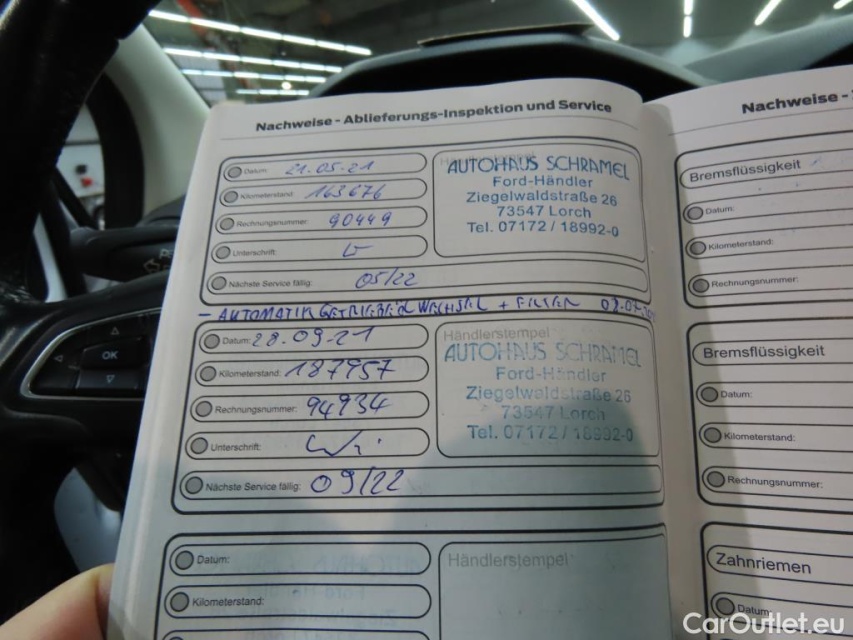 Nachweise - Ablieferungs-Inspektion und Service
Datum: 21.05.21
Kilometerstand: 163676
Rechnungsnummer: 90449
Unterschrift:
Nächste Service fällig: 05/22
AUTOHAUS SCHRAMEL
Ford-Händler
Ziegelwaldstraße 26
73547 Lorch
Tel. 07172 / 18992-0
- AUTOMATIKGETRIEBEÖLWECHSEL + FILTER
Datum: 28.09.21
Kilometerstand: 187957
Rechnungsnummer: 94934
Unterschrift:
Nächste Service fällig: 09/22
Händlerstempel
AUTOHAUS SCHRAMEL
Ford-Händler
Ziegelwaldstraße 26
73547 Lorch
Tel. 07172 / 18992-0
Datum:
Kilometerstand:
Händlerstempel
Nachweise -
Bremsflüssigkeit
Datum:
Kilometerstand:
Rechnungsnummer:
Bremsflüssigkeit
Datum:
Kilometerstand:
Rechnungsnummer:
Zahnriemen
Datum:
OK
CarOutlet.eu